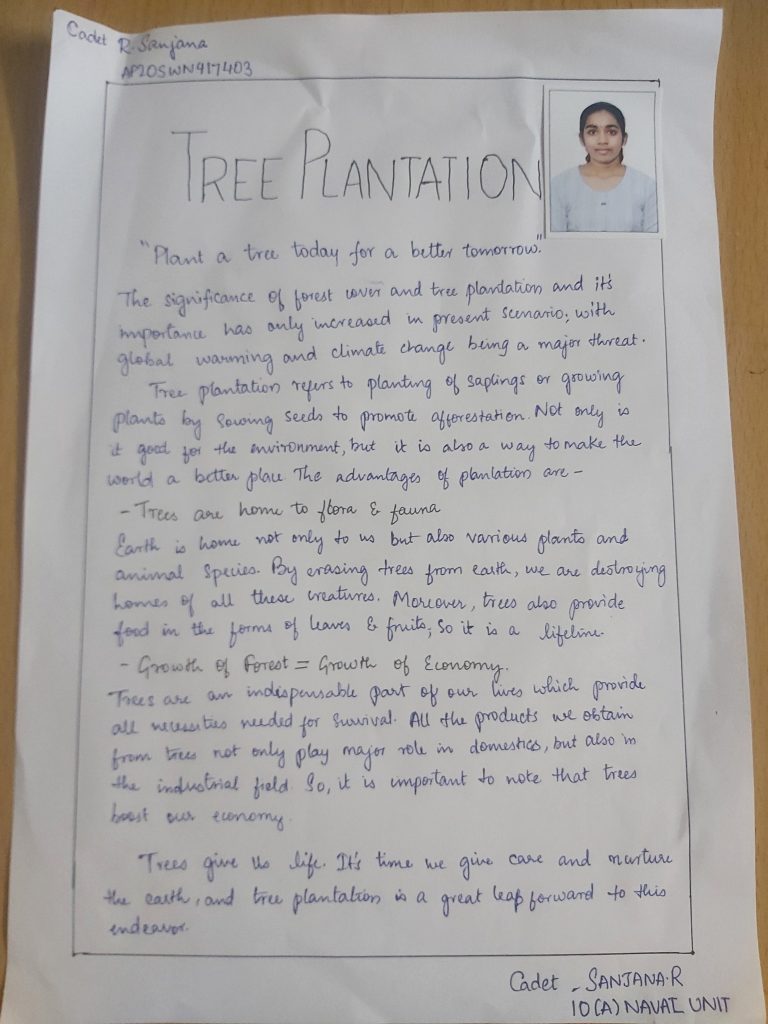 Cadet R. Sanjana
AP20SWN917403
TREE PLANTATION
"Plant a tree today for a better tomorrow."
The significance of forest cover and tree plantation and it's
importance has only increased in present scenario; with
global warming and climate change being a major threat.
Tree plantation refers to planting of saplings or growing
plants by sowing seeds to promote afforestation. Not only is
it good for the environment, but it is also a way to make the
world a better place The advantages of planlation are -
- Trees are home to flora & fauna
Earth is home not only to us but also various plants and
animal species. By erasing trees from earth, we are destroying
homes of all these creatures. Moreover, trees also provide
food in the forms of leaves & fruits, So it is a lifeline.
- Growth of Forest = Growth of Economy.
Trees are an indispensable part of our lives which provide
all necessities needed for survival. All the products we obtain
from trees not only play major role in domestics, but also in
the industrial field. So, it is important to note that trees
boost our economy.
Trees give us life. It's time we give care and nurture
the earth, and tree plantation is a great leap forward to this
endeavor.
Cadet - SANJANA.R
10(A) NAVAL UNIT